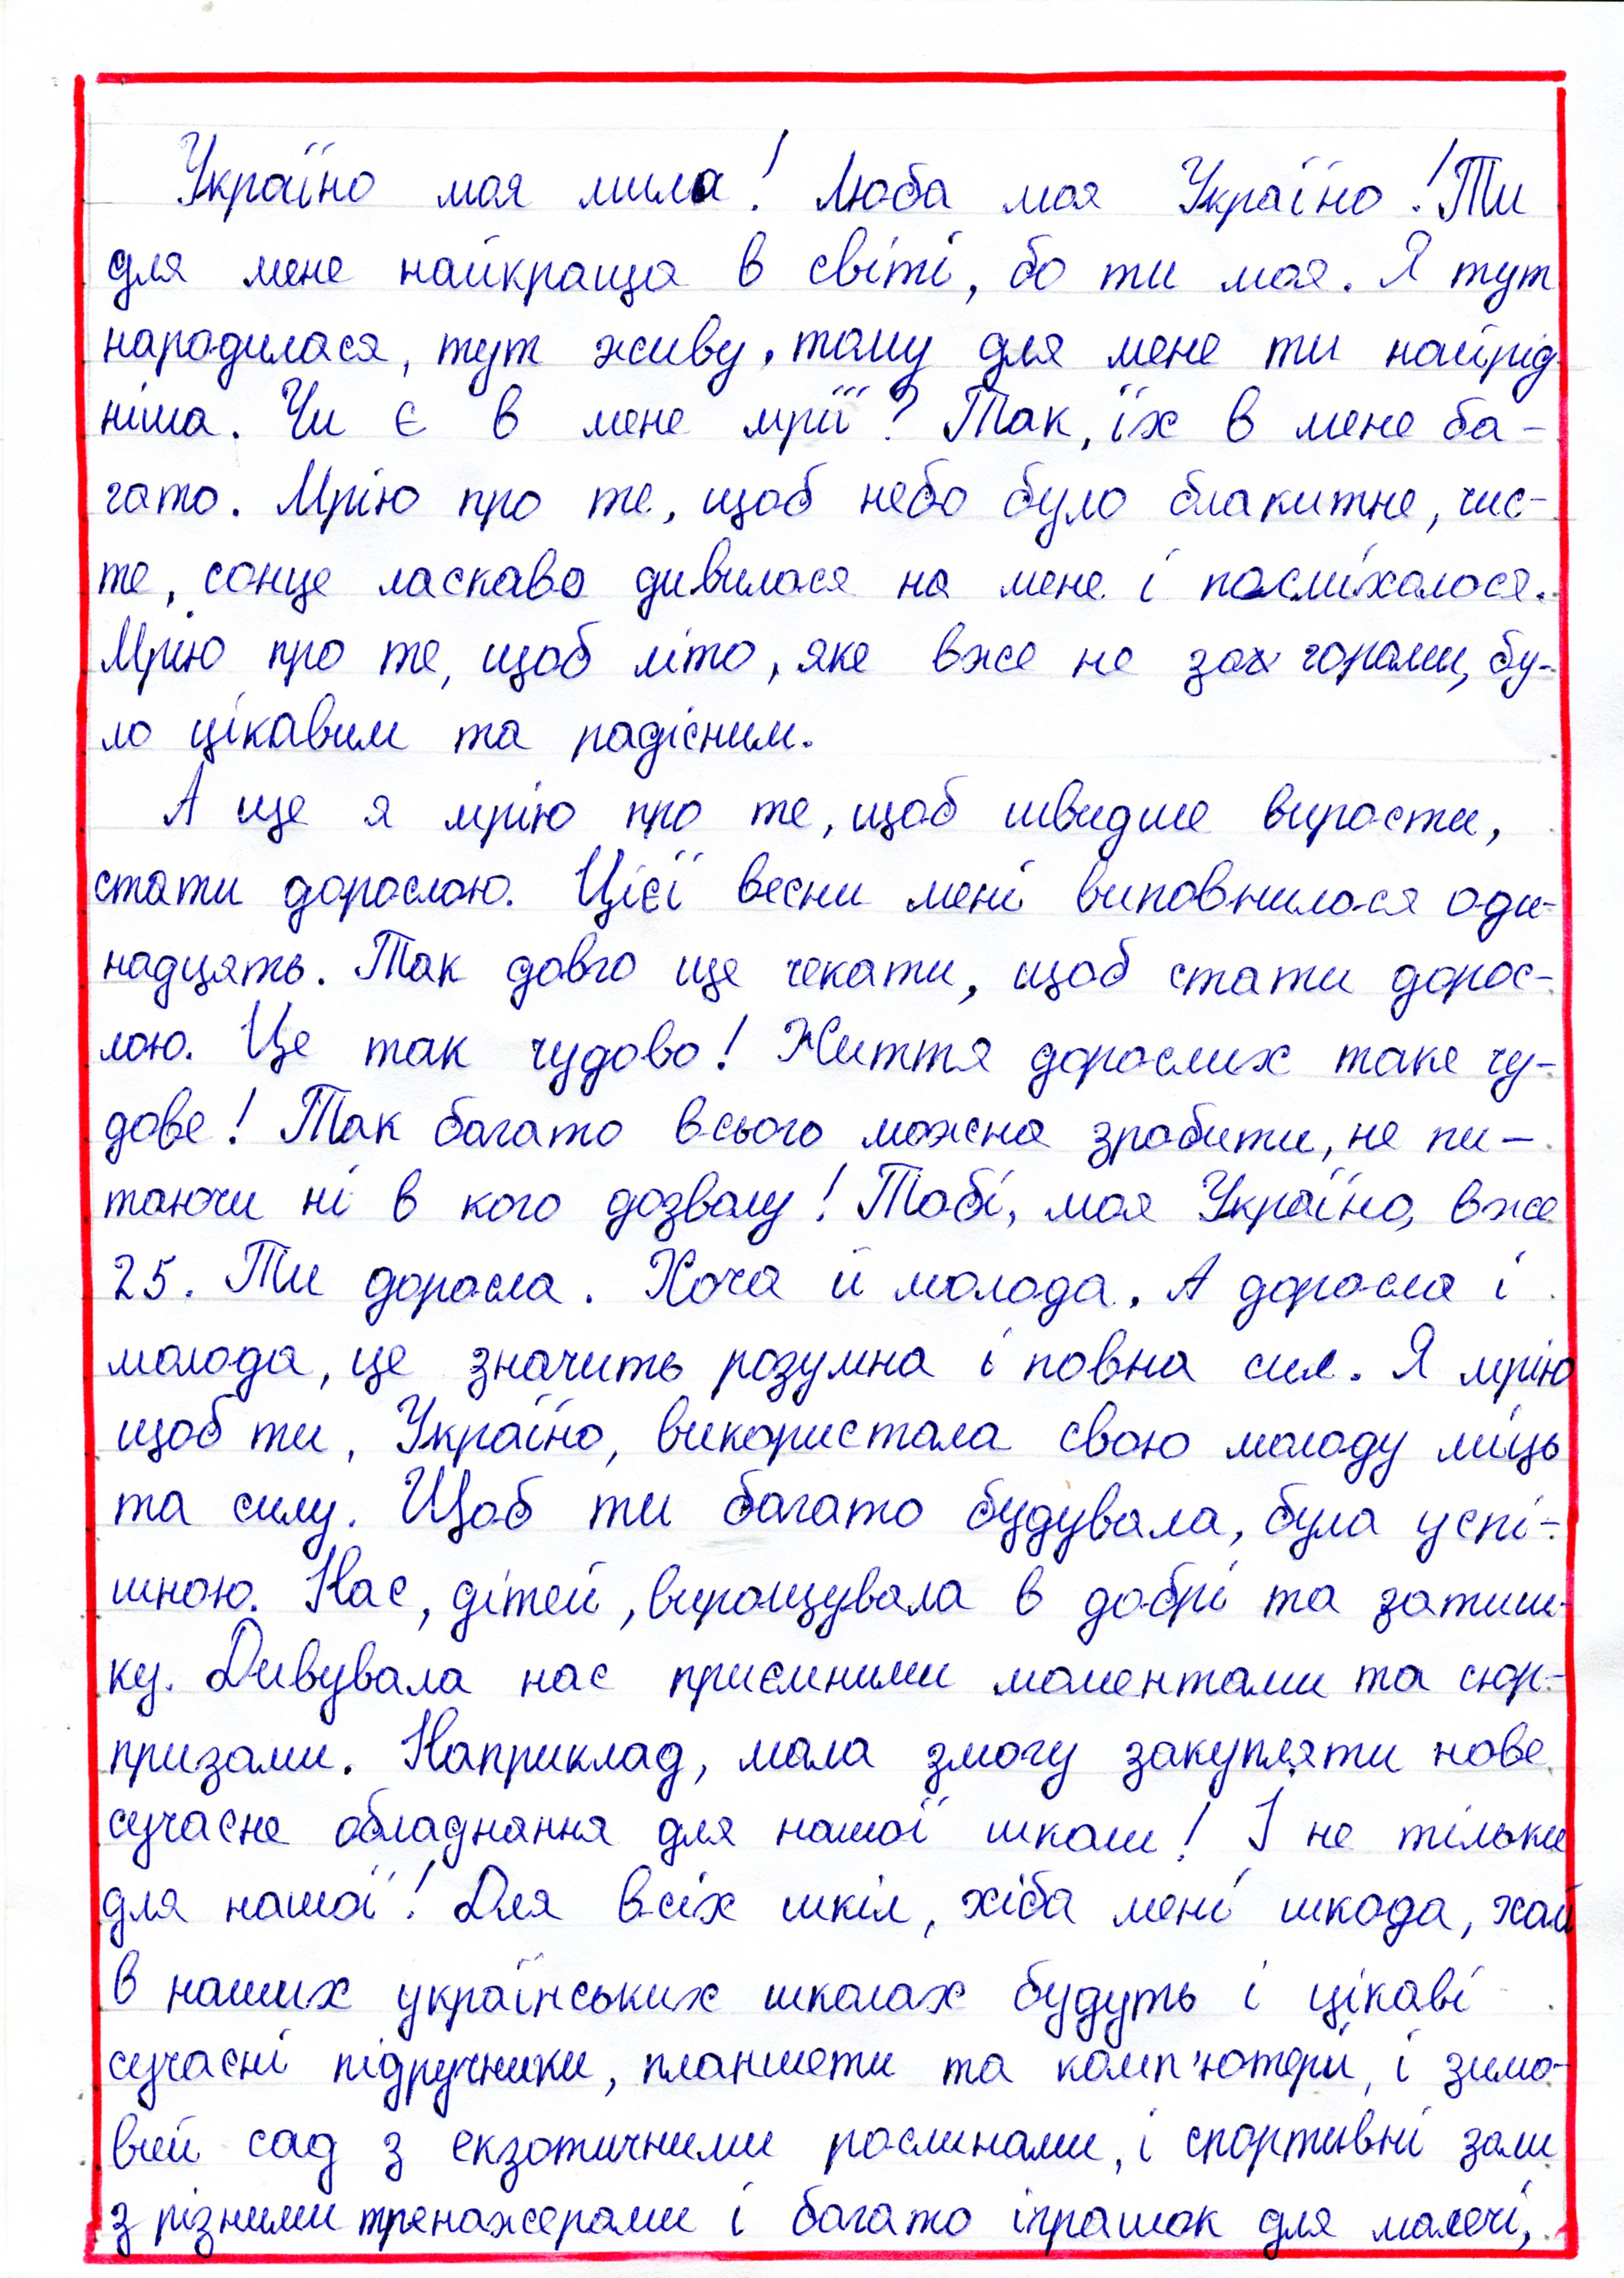 Україно моя мила! Люба моя Україно! Ти
для мене найкраща в світі, бо ти моя. Я тут
народилася, тут живу, тому для мене ти найрід-
ніша. Чи є в мене мрії? Так, їх в мене ба-
гато. Мрію про те, щоб небо було блакитне, чис-
те, сонце ласкаво дивилося на мене і посміхалося.
Мрію про те, щоб літо, яке вже не за горами, бу-
ло цікавим та радісним.
А ще я мрію про те, щоб швидше вирости,
стати дорослою. Цієї весни мені виповнилося оди-
надцять. Так довго ще чекати, щоб стати дорос-
лою. Це так чудово! Життя дорослих таке чу-
дове! Так багато всього можна зробити, не пи-
таючи ні в кого дозволу! Тобі, моя Україно, вже
25. Ти доросла. Хоча й молода. А доросла і
молода, це значить розумна і повна сил. Я мрію
щоб ти, Україно, використала свою молоду міць
та силу. Щоб ти багато будувала, була успі-
шною. Нас, дітей, вирощувала в добрі та затиш-
ку. Дивувала нас приємними моментами та сюр-
призами. Наприклад, мала змогу закупляти нове
сучасне обладнання для нашої школи! І не тільки
для нашої! Для всіх шкіл, хіба мені шкода, хай
в наших українських школах будуть і цікаві
сучасні підручники, планшети та комп'ютери, і зимо-
вий сад з екзотичними рослинами, і спортивні зали
з різними тренажерами і багато іграшок для малечі,